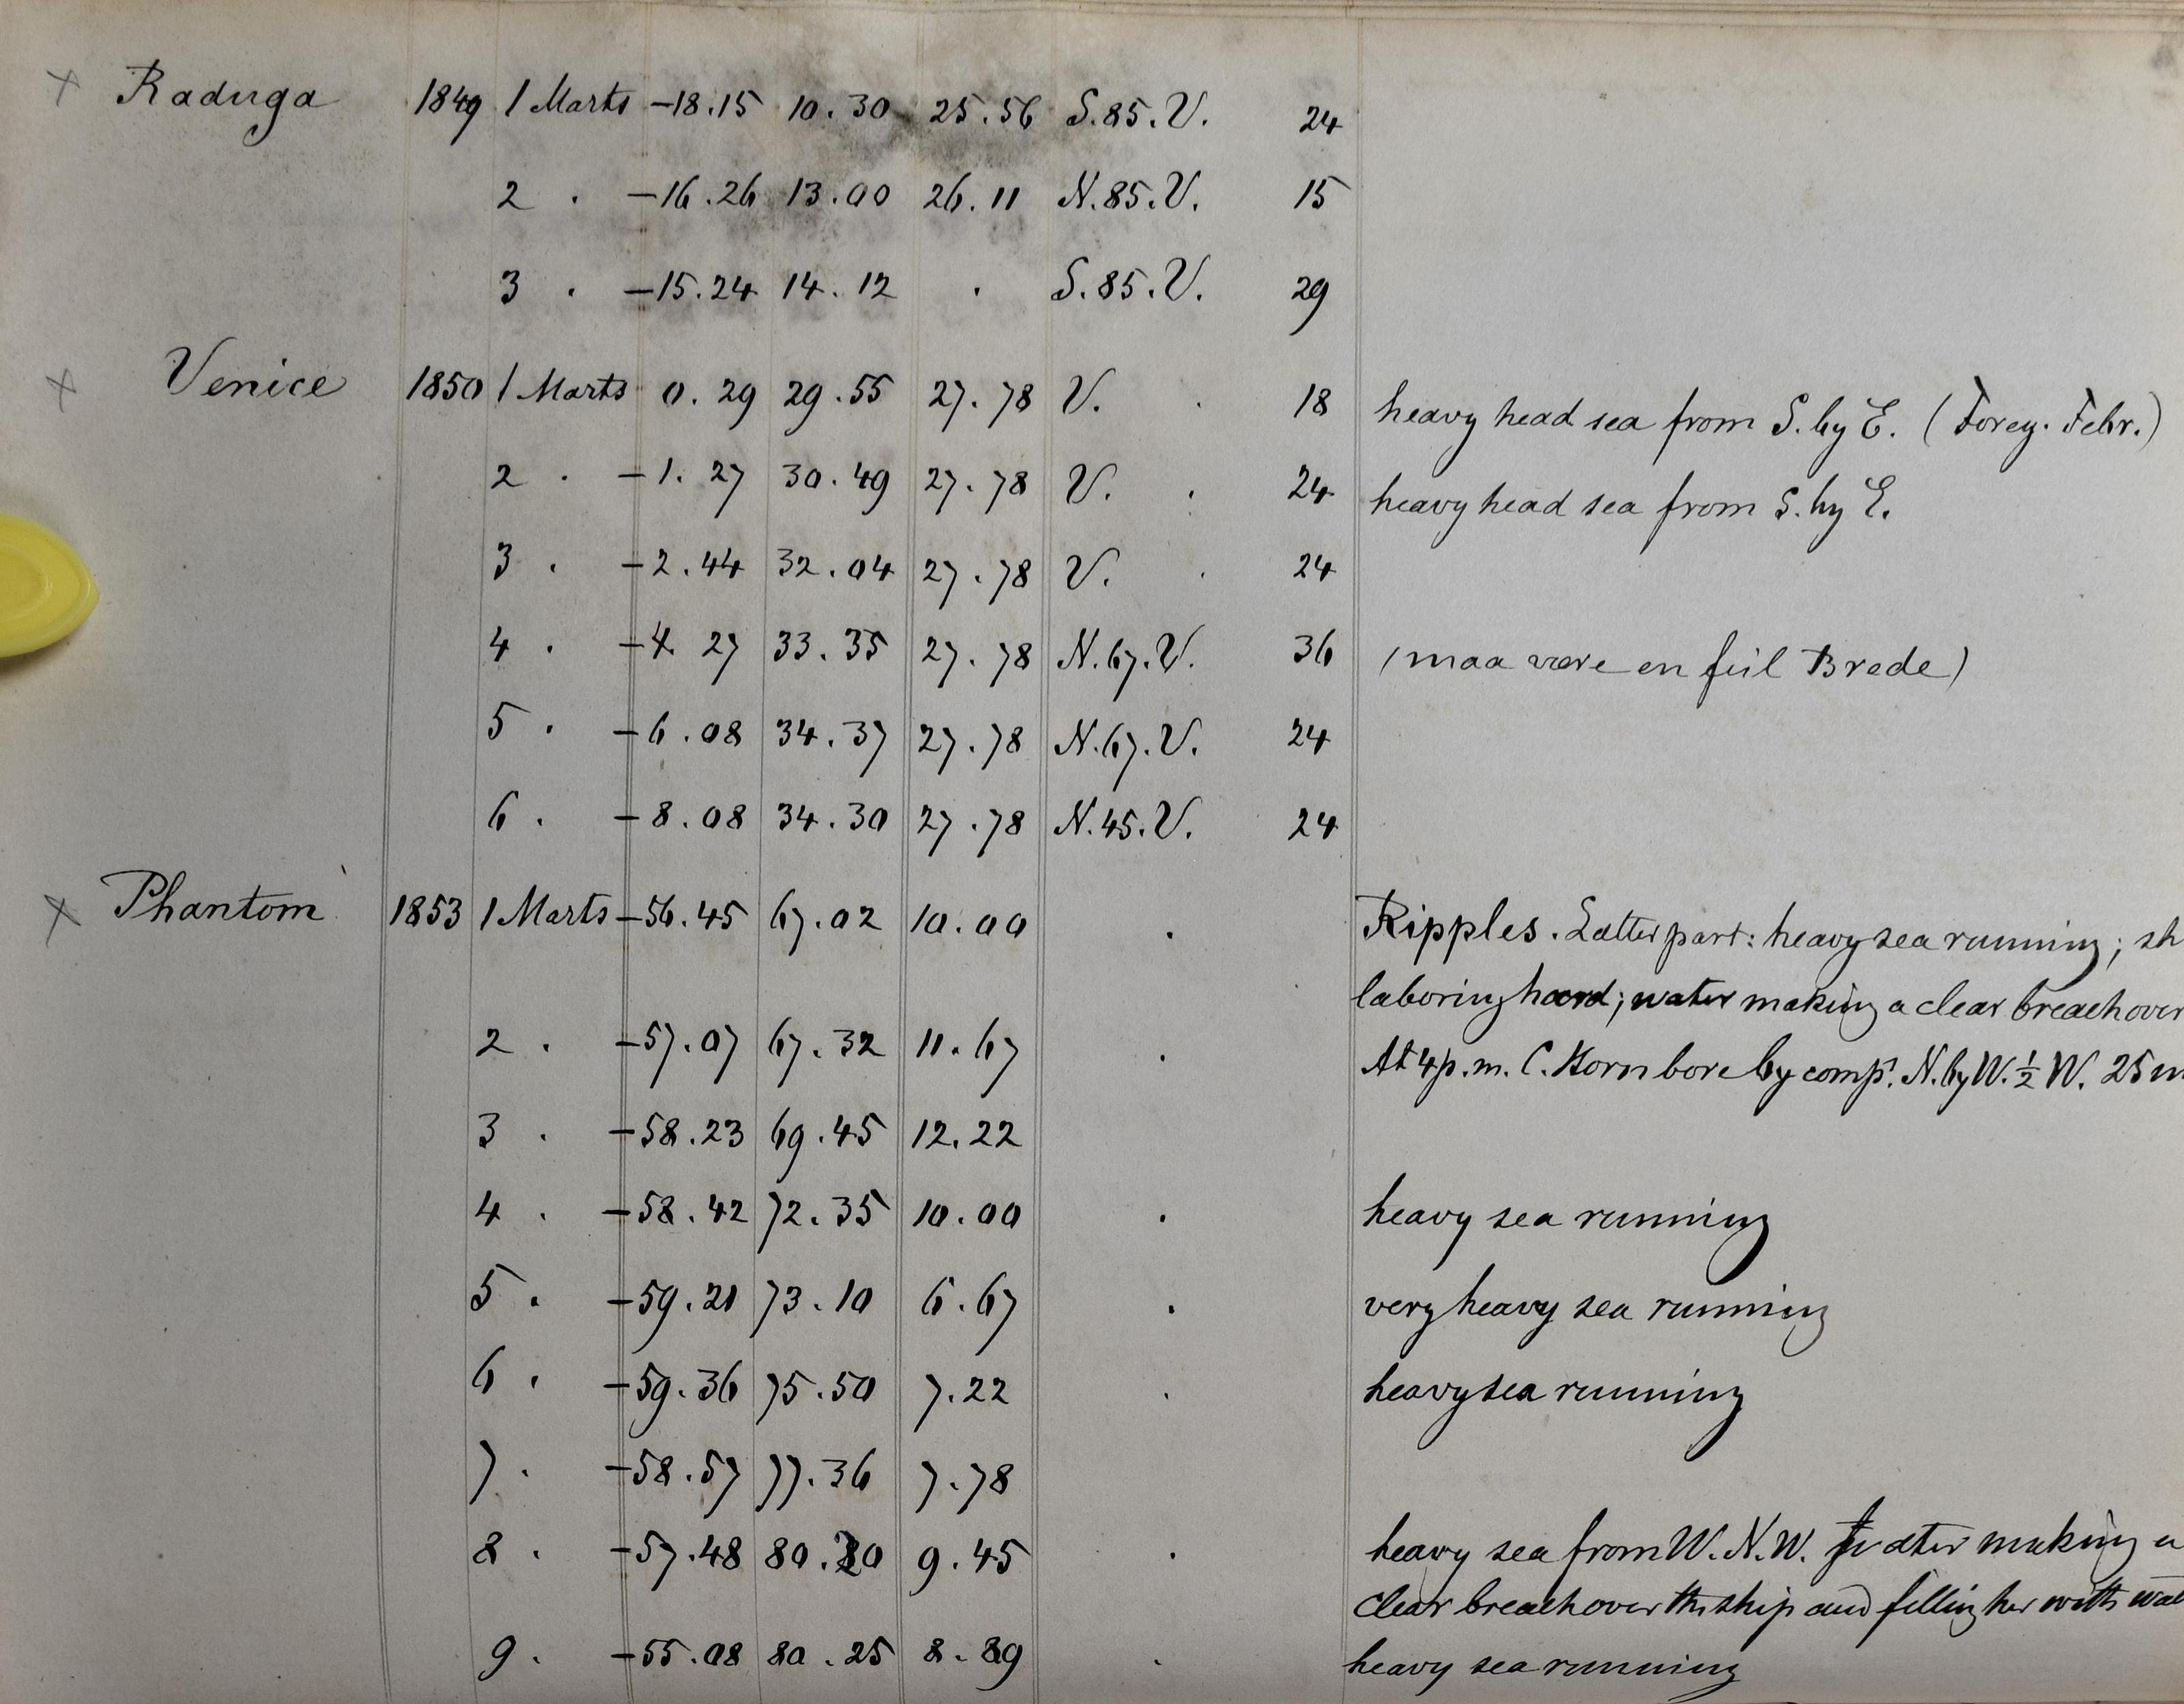 × Raduga 1849 1 Marts -18.15 10.30 25.56 S.85.V. 24
2 . -16.26 13.00 26.11 N.85.V. 15
3 . -15.24 14.12 . S.85.V. 29
× Venice 1850 1 Marts 0.29 29.55 27.78 V. . 18 heavy head sea from S. by E. (Foreg. Febr.)
2 . -1.27 30.49 27.78 V. . 24 heavy head sea from S. by E.
3 . -2.44 32.04 27.78 V. . 24
4 . -4.27 33.35 27.78 N.67.V. 36 (maa være en feil Brede)
5 . -6.08 34.37 27.78 N.67.V. 24
6 . -8.08 34.30 27.78 N.45.V. 24
× Phantom 1853 1 Marts -56.45 67.02 10.00 . Ripples. Latter part: heavy sea running; sh
laboring hard; water making a clear breach over
2 . -57.07 67.32 11.67 . At 4 p.m. C. Horn bore by comp. N. by W. ½ W. 25 m
3 . -58.23 69.45 12.22
4 . -58.42 72.35 10.00 . heavy sea running
5 . -59.21 73.10 6.67 . very heavy sea running
6 . -59.36 75.50 7.22 . heavy sea running
7 . -58.57 77.36 7.78
8 . -57.48 80.20 9.45 . heavy sea from W.N.W. water making a
clear breach over the ship and filling her with wat
9 . -55.08 80.25 8.89 . heavy sea running